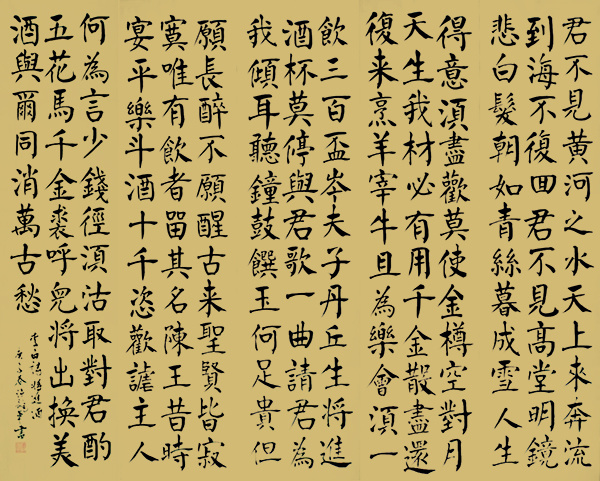 君不見黃河之水天上来奔流
到海不復回君不見高堂明鏡
悲白髮朝如青絲暮成雪人生
得意須盡歡莫使金樽空對月
天生我材必有用千金散盡還
復来烹羊宰牛且為樂會須一
飲三百盃岑夫子丹丘生將進
酒杯莫停與君歌一曲請君為
我傾耳聽鐘鼓饌玉何足貴但
願長醉不願醒古来聖賢皆寂
寞唯有飲者留其名陳王昔時
宴平樂斗酒十千恣歡謔主人
何為言少錢徑須沽取對君酌
五花馬千金裘呼兒將出換美
酒與爾同消萬古愁
李白詩將進酒